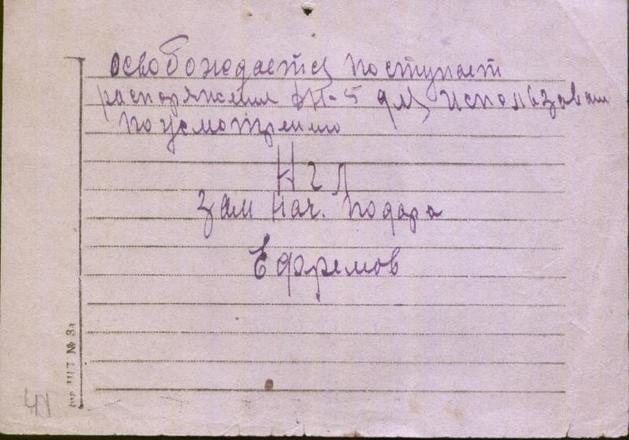 освобождается поступает
распоряжения ФП-5 для использован
по усмотрению
НГЛ
Зам нач. Подара
Ефремов
№ 3а
41